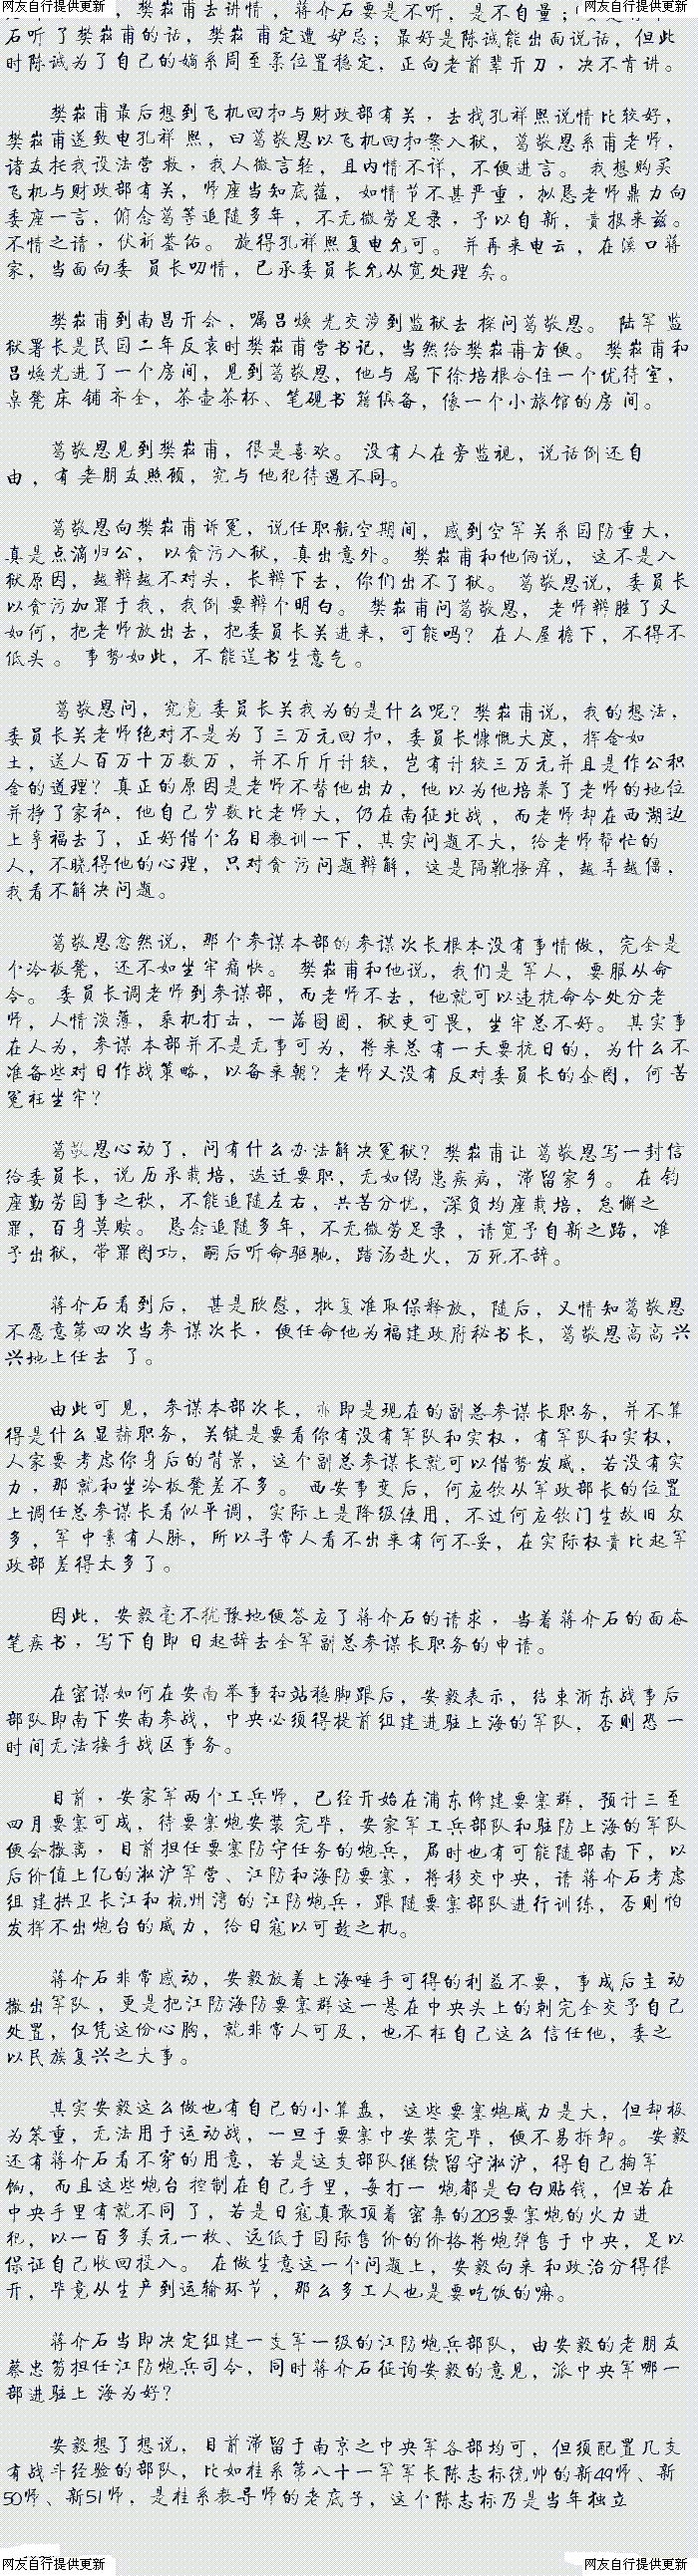 网友自行提供更新 网友自行提供更新
，樊崧甫去讲情，蒋介石要是不听，是不自量；
石听了樊崧甫的话，樊崧甫定遭妒忌；最好是陈诚能出面说话，但此
时陈诚为了自己的嫡系周至柔位置稳定，正向老前辈开刀，决不肯讲。
樊崧甫最后想到飞机回扣与财政部有关，去找孔祥熙说情比较好，
樊崧甫遂致电孔祥熙，曰葛敬恩以飞机回扣案入狱，葛敬恩系甫老师，
诸友托我设法营救，我人微言轻，且内情不详，不便进言。我想购买
飞机与财政部有关，师座当知底蕴，如情节不甚严重，拟恳老师鼎力向
委座一言，俯念葛等追随多年，不无微劳足录，予以自新，责报来兹。
不情之请，伏祈鉴佑。旋得孔祥熙复电允可。并再来电云，在溪口蒋
家，当面向委员长叨情，已承委员长允从宽处理矣。
樊崧甫到南昌开会，嘱吕焕光交涉到监狱去探问葛敬恩。陆军监
狱署长是民国二年反袁时樊崧甫营书记，当然给樊崧甫方便。樊崧甫和
吕焕光进了一个房间，见到葛敬恩，他与属下徐培根合住一个优待室，
桌凳床铺齐全，茶壶茶杯、笔砚书籍俱备，像一个小旅馆的房间。
葛敬恩见到樊崧甫，很是喜欢。没有人在旁监视，说话倒还自
由，有老朋友照顾，究与他犯待遇不同。
葛敬恩向樊崧甫诉冤，说任职航空期间，感到空军关系国防重大，
真是点滴归公，以贪污入狱，真出意外。樊崧甫和他俩说，这不是入
狱原因，越辩越不对头，长辩下去，你们出不了狱。葛敬恩说，委员长
以贪污加罪于我，我倒要辩个明白。樊崧甫问葛敬恩，老师辩胜了又
如何，把老师放出去，把委员长关进来，可能吗？在人屋檐下，不得不
低头。事势如此，不能逞书生意气。
葛敬恩问，究竟委员长关我为的是什么呢？樊崧甫说，我的想法，
委员长关老师绝对不是为了三万元回扣，委员长慷慨大度，挥金如
土，送人百万十万数万，并不斤斤计较，岂有计较三万元并且是作公积
金的道理？真正的原因是老师不替他出力，他以为他培养了老师的地位
并挣了家私，他自己岁数比老师大，仍在南征北战，而老师却在西湖边
上享福去了，正好借个名目教训一下，其实问题不大，给老师帮忙的
人，不晓得他的心理，只对贪污问题辩解，这是隔靴搔痒，越弄越僵，
我看不解决问题。
葛敬恩忿然说，那个参谋本部的参谋次长根本没有事情做，完全是
个冷板凳，还不如坐牢痛快。樊崧甫和他说，我们是军人，要服从命
令。委员长调老师到参谋部，而老师不去，他就可以违抗命令处分老
师，人情淡薄，乘机打击，一落囹圄，狱吏可畏，坐牢总不好。其实事
在人为，参谋本部并不是无事可为，将来总有一天要抗日的，为什么不
准备些对日作战策略，以备来朝？老师又没有反对委员长的企图，何苦
冤枉坐牢？
葛敬恩心动了，问有什么办法解决冤狱？樊崧甫让葛敬恩写一封信
给委员长，说历承栽培，迭迁要职，无如偶患疾病，滞留家乡。在钧
座勤劳国事之秋，不能追随左右，共苦分忧，深负均座栽培，怠懈之
罪，百身莫赎。恳念追随多年，不无微劳足录，请宽予自新之路，准
予出狱，带罪图功，嗣后听命驱驰，踏汤赴火，万死不辞。
蒋介石看到后，甚是欣慰，批复准取保释放，随后，又情知葛敬恩
不愿意第四次当参谋次长，便任命他为福建政府秘书长，葛敬恩高高兴
兴地上任去了。
由此可见，参谋本部次长，亦即是现在的副总参谋长职务，并不算
得是什么显赫职务，关键是要看你有没有军队和实权，有军队和实权，
人家要考虑你身后的背景，这个副总参谋长就可以借势发威，若没有实
力，那就和坐冷板凳差不多。西安事变后，何应钦从军政部长的位置
上调任总参谋长看似平调，实际上是降级使用，不过何应钦门生故旧众
多，军中素有人脉，所以寻常人看不出来有何不妥，在实际权责比起军
政部差得太多了。
因此，安毅毫不犹豫地便答应了蒋介石的请求，当着蒋介石的面奋
笔疾书，写下自即日起辞去全军副总参谋长职务的申请。
在密谋如何在安南举事和站稳脚跟后，安毅表示，结束浙东战事后
部队即南下安南参战，中央必须得提前组建进驻上海的军队，否则恐一
时间无法接手战区事务。
目前，安家军两个工兵师，已经开始在浦东修建要塞群，预计三至
四月要塞可成，待要塞炮安装完毕，安家军工兵部队和驻防上海的军队
便会撤离，目前担任要塞防守任务的炮兵，届时也有可能随部南下，以
后价值上亿的淞沪军营、江防和海防要塞，将移交中央，请蒋介石考虑
组建拱卫长江和杭州湾的江防炮兵，跟随要塞部队进行训练，否则怕
发挥不出炮台的威力，给日寇以可趁之机。
蒋介石非常感动，安毅放着上海唾手可得的利益不要，事成后主动
撤出军队，更是把江防海防要塞群这一悬在中央头上的刺完全交予自己
处置，仅凭这份心胸，就非常人可及，也不枉自己这么信任他，委之
以民族复兴之大事。
其实安毅这么做也有自己的小算盘，这些要塞炮威力是大，但却极
为笨重，无法用于运动战，一旦于要塞中安装完毕，便不易拆卸。安毅
还有蒋介石看不穿的用意，若是这支部队继续留守淞沪，得自己掏军
饷，而且这些炮台控制在自己手里，每打一炮都是白白贴钱，但若在
中央手里有就不同了，若是日寇真敢顶着密集的203要塞炮的火力进
犯，以一百多美元一枚、远低于国际售价的价格将炮弹售于中央，足以
保证自己收回投入。在做生意这一个问题上，安毅向来和政治分得很
开，毕竟从生产到运输环节，那么多工人也是要吃饭的嘛。
蒋介石当即决定组建一支军一级的江防炮兵部队，由安毅的老朋友
蔡忠笏担任江防炮兵司令，同时蒋介石征询安毅的意见，派中央军哪一
部进驻上海为好？
安毅想了想说，目前滞留于南京之中央军各部均可，但须配置几支
有战斗经验的部队，比如桂系第八十一军军长陈志标统帅的新49师、新
50师、新51师，是桂系教导师的老底子，这个陈志标乃是当年独立
网友自行提供更新 网友自行提供更新